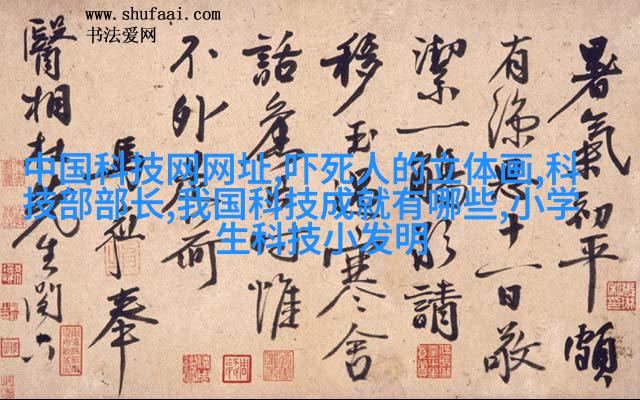 www.shufaai.com
书法爱网
中国科技网网址,吓死人的立体画,科
技部部长,我国科技成就有哪些,小学
生科技小发明
暑氣初平頗
有涼思十一日敬
潔一觴請
移玉寒舍
話舊惟
不外荷
奉
醫相先生閣下